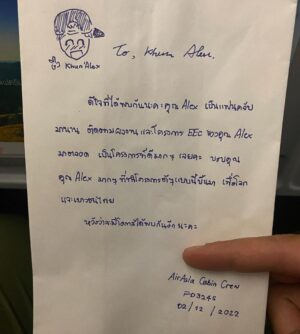 To, Khun Alex.
Khun Alex
ดีใจที่ได้พบกันนะคะคุณ Alex เป็นแฟนคลับ
มานาน ติดตามผลงาน และโครงการ EEC ของคุณ Alex
มาตลอด เป็นโครงการที่ดีมากๆ เลยค่ะ ขอบคุณ
คุณ Alex มากๆ ที่ทำโครงการดีๆแบบนี้ขึ้นมา เพื่อโลก
และเยาวชนไทย
หวังว่าจะมีโอกาสได้พบกันอีกนะคะ
AirAsia Cabin Crew
FD3245
02/12/2022